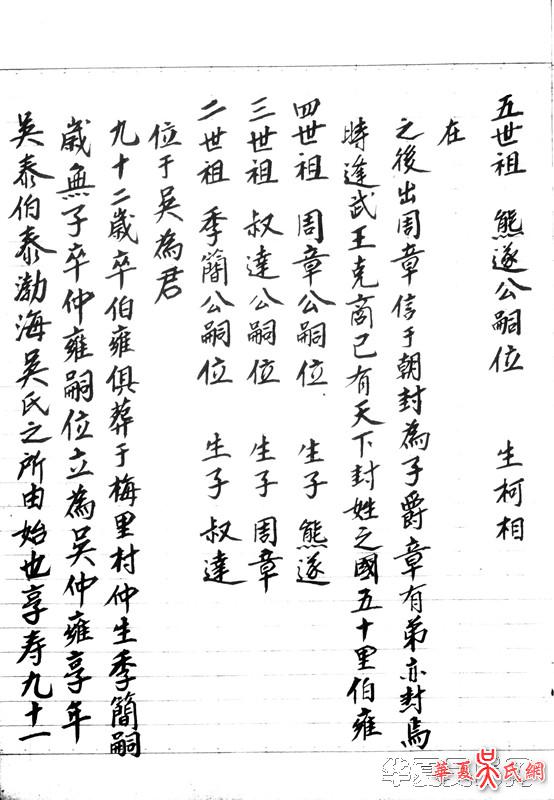 吴泰伯泰渤海吴氏之所由始也享寿九十一
歲無子卒仲雍嗣位立為吴仲雍享年
九十二歲卒伯雍俱葬于梅里村仲生季簡嗣
位于吴為君
二世祖 季簡公嗣位 生子 叔達
三世祖 叔達公嗣位 生子 周章
四世祖 周章公嗣位 生子 熊遂
時逢武王克商已有天下封姓之國五十里伯雍
之後出周章信于朝封為子爵章有弟亦封焉
在
五世祖 熊遂公嗣位 生柯相
華夏吴氏網